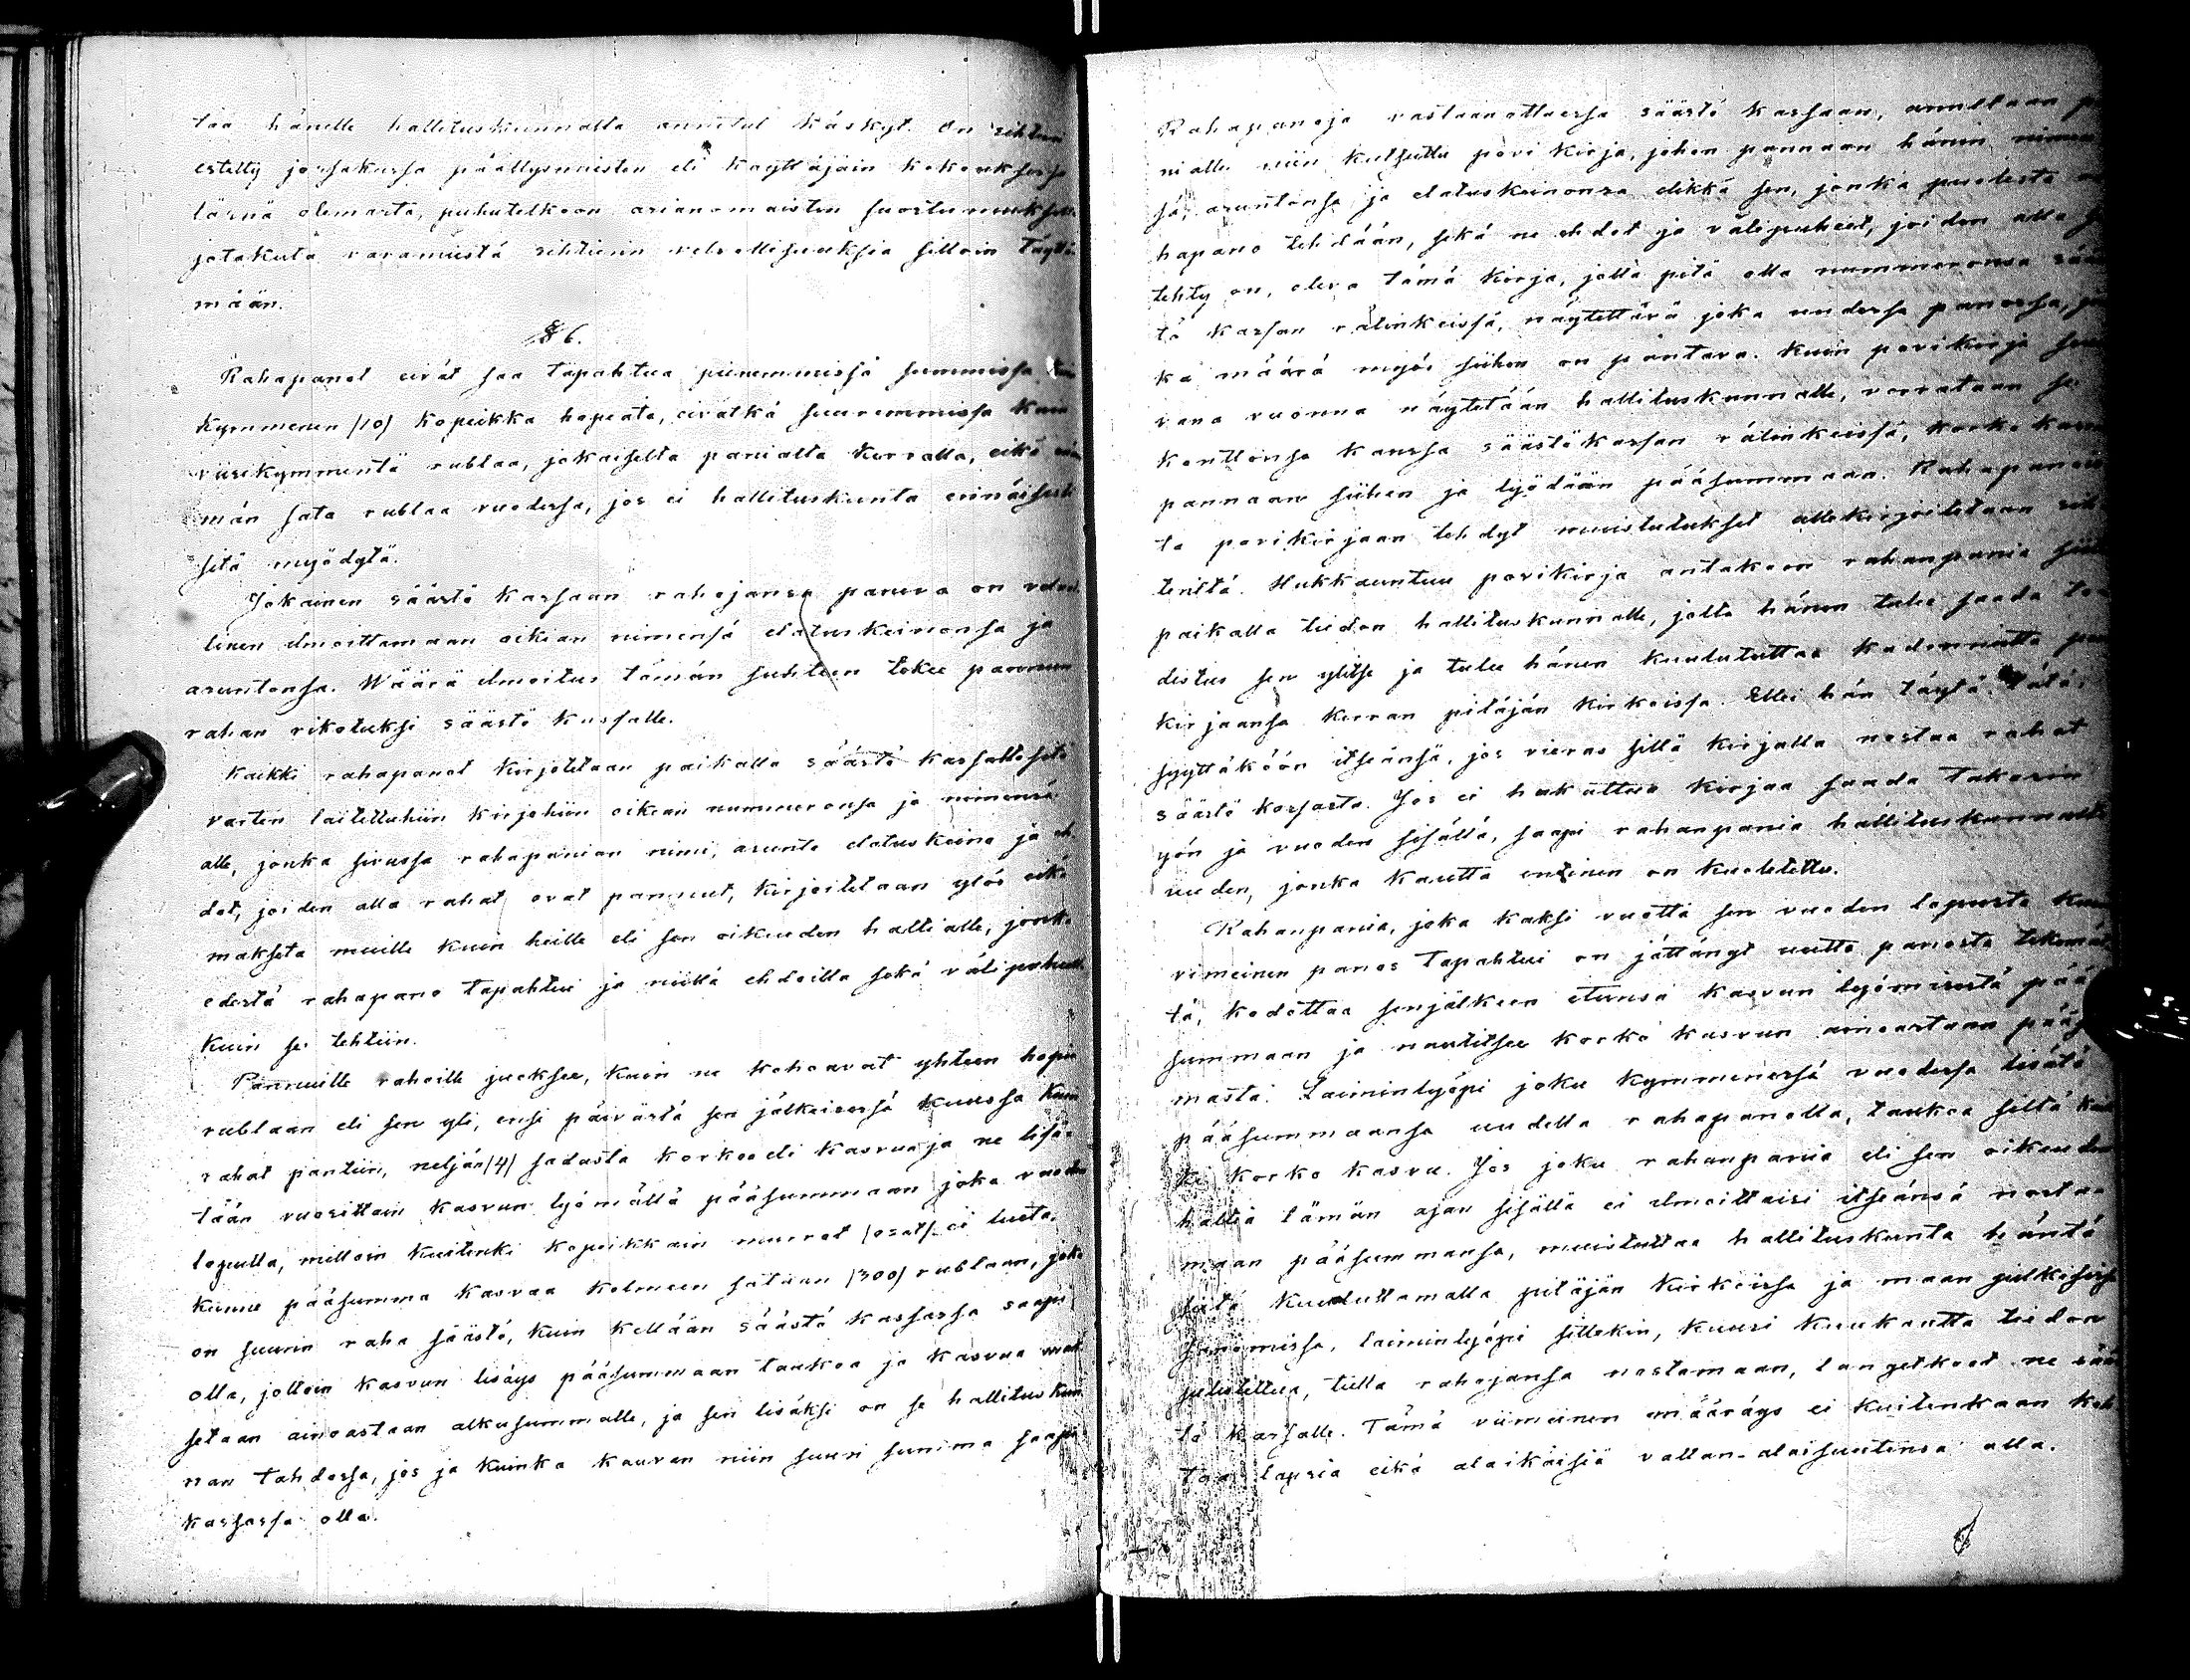 taa hänelle hallituskunnalta annetut käskyt. On sihteri
estetty jossakussa päällysmiesten eli käyttäjäin kokouksessa
läsnä olemasta, puhutelkoon asianomaisten suostumuksella
jotakuta varamiestä sihtierin velvollisuuksia silloin täyttä-
mään.
§ 6.
Rahapanot eivät saa tapahtua pienemmissä summissa kuin
kymmenen /10/ kopeikka hopeata, eivätkä suuremmissa kuin
viisikymmentä rublaa, jokaiselta panialta kerralla, eikä
män sata rublaa vuodessa, jos ei hallituskunta erinäisesti
sitä myödytä.
Jokainen säästö kassaan rahojansa paneva on velvol-
linen ilmoittamaan oikian nimensä elatuskeinonsa ja
asuntonsa. Wäärä ilmoitus tämän suhteen tekee pannun
rahan rikotuksi säästö kassalle.
Kaikki rahapanot kirjoitetaan paikalla säästö kassalla sitä
varten laitettuhiin kirjohiin oikean nummeronsa ja nimensä
alle, jonka sivussa rahapanian nimi, asunto elatuskeino ja eh-
dot, joiden alla rahat ovat pannut, kirjoitetaan ylös eikä
makseta muille kuin heille eli sen oikeuden haltialle, jonka
edestä rahapano tapahtui ja niillä ehdoilla sekä välipuheilla
kuin se tehtiin.
Pannuille rahoille juoksee, kuin ne kohoavat yhteen hopia
rublaan eli sen yli, ensi päivästä sen jälkeisessä kuussa kuin
rahat pantiin, neljän /4/ sadasta korkoa eli kasvua ja ne lisä-
tään vuosittain kasvun lyömällä pääsummaan joka vuoden
lopulla, milloin kuitenki kopeikkain muurot /osat/ ei lueta.
Kunne pääsumma kasvaa kolmeen sataan /300/ rublaan, joka
on suurin raha säästö, kuin kellään säästö kassassa saapi
olla, jolloin kasvun lisäys pääsummaan taukoa ja kasvua mak-
setaan ainoastaan alkusummalle, ja sen lisäksi on se hallituskun-
nan tahdossa, jos ja kuinka kauvan niin suuri summa saapi
kassassa olla.
Rahapanoja vastaanottaessa säästö kassaan, annetaan
nialle niin kutsuttu povi kirja, johon pannaan hänen nimen
sä, asuntonsa ja elatuskeinonsa elikkä sen, jonka puolesta
hapano tehdään, sekä ne ehdot ja välipuheet, joiden alla
tehty on, oleva tämä kirja, jolla pitä olla nummeronsa sääs
tö kassan rätinkeissä, näytettävä joka uudessa panossa,
ka määrä myös siihen on pantava. Kuin povikirja
vana vuonna näytetään hallituskunnalle, verrataan se
konttonsa kanssa säästökassan rätinkeissä, korko kasvu
pannaan siihen ja lyödään pääsummaan. Rahapanois
ta povikirjaan tehdyt muistutukset allekirjoitetaan sih-
teriltä. Hukkauntuu povikirja antakoon rahanpania
paikalla tiedon hallituskunnalle, jolta hänen tulee saada to
distus sen ylitse ja tulee hänen kuulututtaa kadonnutta povi
kirjaansa kerran pitäjän kirkoissa. Ellei hän täytä tätä,
syyttäköön itseänsä, jos vieras sillä kirjalla nostaa rahat
säästö kassasta. Jos ei hukattua kirjaa saada takasin
yön ja vuoden sisällä, saapi rahanpania hallituskunnalta
uuden, jonka kautta entinen on kuoletettu.
Rahanpania, joka kaksi vuotta sen vuoden lopusta kuin
vimeinen panos tapahtui on jättänyt uutta panosta tekemät-
tä, kadottaa senjälkeen etunsa kasvun lyömisestä pää
summaan ja nautitsee korko kasvun ainoastaan pääsum
masta. Laiminlyöpi joku kymmenessä vuodessa lisätä
pääsummaansa uudella rahapanolla, taukoa siltä kai
ki korko kasvu. Jos joku rahanpania eli sen oikeuden
haltia tämän ajan sisällä ei ilmoittaisi itseänsä nosta-
maan pääsummansa, muistuttaa hallituskunta häntä
siitä kuuluttamalla pitäjän kirkoissa ja maan julkisissa
sanomissa, laiminlyöpi sittekin, kuusi kuukautta tiedon
julistettua, tulla rahojansa nostamaan, langetkoot ne sääs
tö kassalle. Tämä viimeinen määräys ei kuitenkaan koh
taa lapsia eikä alaikäisiä vallan-alaisuutensa alla.